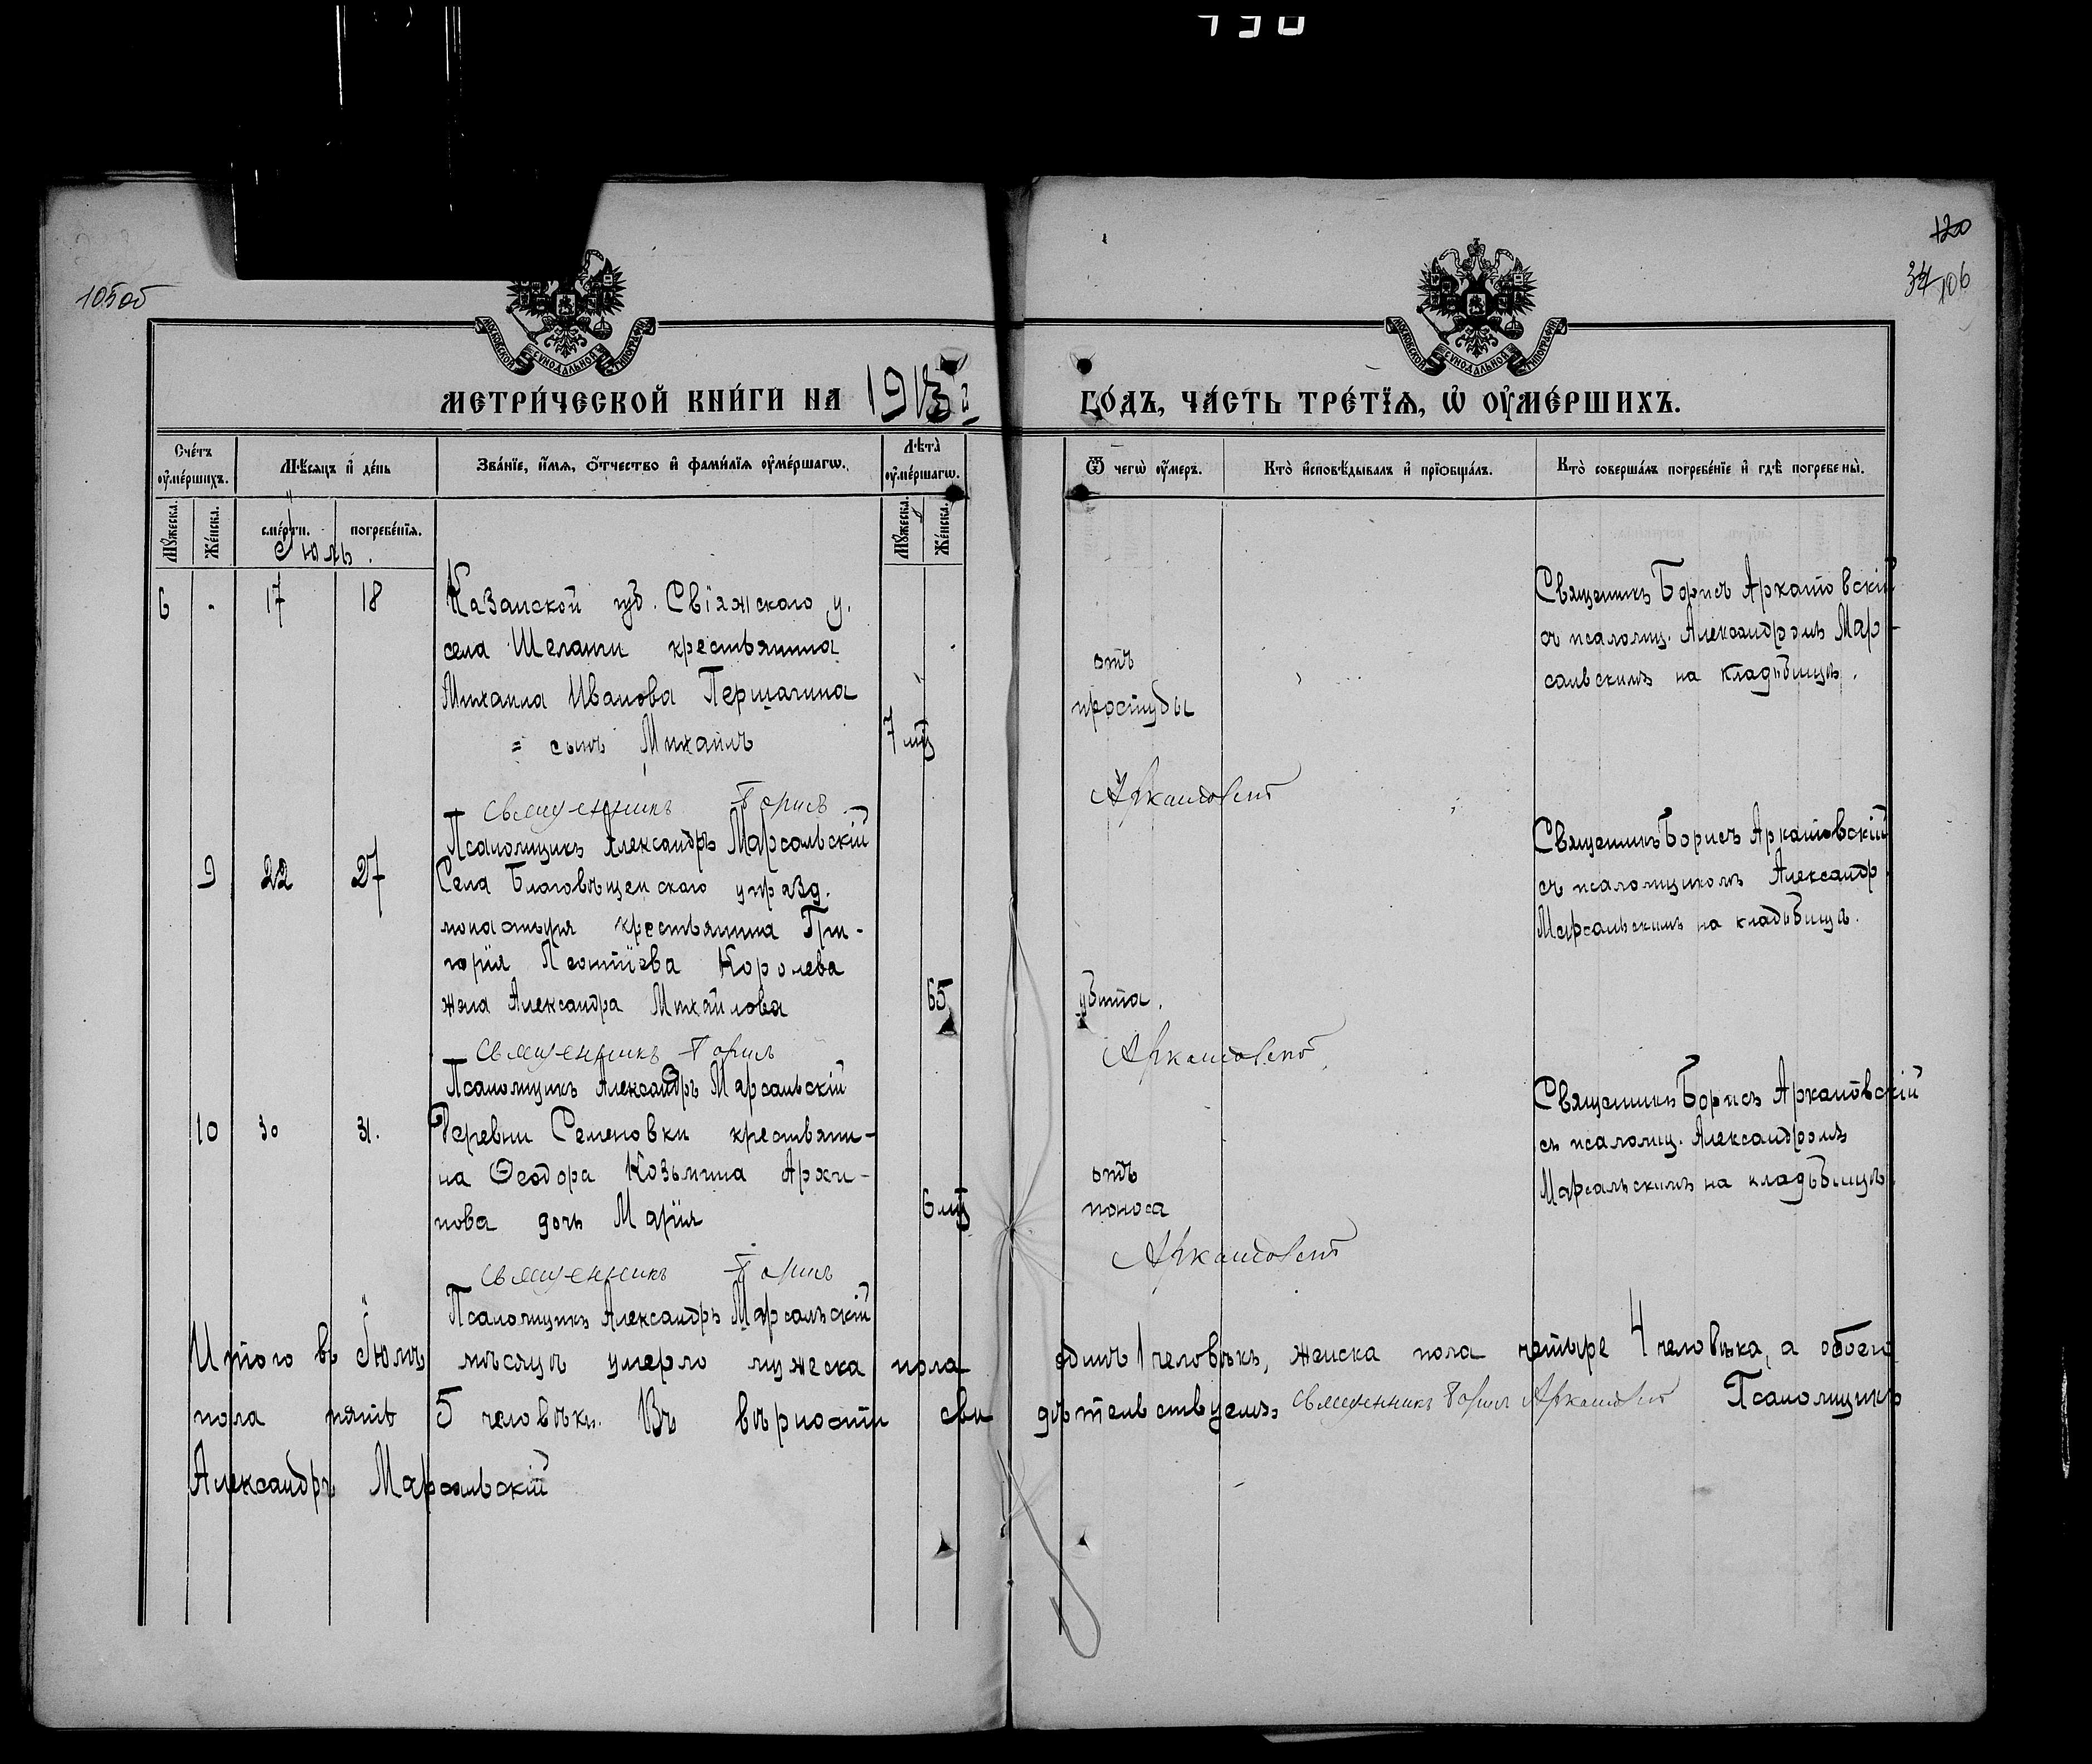 105об
120
34 106
МОСКОВСКОЙ СѴНОДАЛЬНОЙ ТИПОГРАФІИ
МОСКОВСКОЙ СѴНОДАЛЬНОЙ ТИПОГРАФІИ
МЕТРИ́ЧЕСКОЙ КНИ́ГИ НА 1913й ГО́ДЪ, ЧА́СТЬ ТРЕ́ТЇѦ, Ѡ҆ ОУ҆МЕ́РШИХЪ.
Сче́тъ оу҆ме́ршихъ.
Мѣ́сяцъ и҆ де́нь
Зва́нїе, и҆́мѧ, ѻ҆́тчество и҆ фами́лїѧ оу҆ме́ршагѡ.
Лѣта̀ оу҆ме́ршагѡ.
Ѿ чегѡ̀ оу҆́меръ.
Кто̀ и҆сповѣ́дывалъ и҆ прїѡбща́лъ.
Кто̀ соверша́лъ погребе́нїе и҆ гдѣ̀ погребены̀.
Мꙋ́жеска.
Же́нска.
сме́рти.
погребе́нїѧ.
Мꙋ́жеска.
Же́нска.
Іюль.
6 - 17 18 Казанской губ. Свіяжскаго у.
села Шеланги крестьянина
Михаила Иванова Першагина
= сынъ Михаилъ
7 мц
отъ
простуды
Священикъ Борисъ Аркатовскій
съ псаломщ. Александромъ Мар-
сальскимъ на кладбищѣ.
Священникъ Борисъ Аркатовскій
Псаломщикъ Александръ Марсальскій
9 22 27 Села Благовѣщенскаго упразд.
монастыря крестьянина Гри-
горія Леонтіева Королева
жена Александра Михайлова
65
убита.
Священикъ Борисъ Аркатовскій
съ псаломщикомъ Александр.
Марсальскимъ на кладбищѣ.
Священникъ Борисъ Аркатовскій
Псаломщикъ Александръ Марсальскій
10 30 31. Деревни Семеновки крестьяни-
на Ѳеодора Козьмина Архи-
пова дочь Марія
6 мц
отъ
поноса
Священикъ Борисъ Аркатовскій
съ псаломщ. Александромъ
Марсальскимъ на кладбищѣ.
Священникъ Борисъ Аркатовскій
Псаломщикъ Александръ Марсальскій
Итого въ Іюлѣ мѣсяцѣ умерло мужеска пола одинъ 1 человѣкъ, женска пола четыре 4 человѣка, а обоего
пола пять 5 человѣкъ. Въ вѣрности сви дѣтельствуемъ: Священникъ Борисъ Аркатовскій Псаломщикъ
Александръ Марсальскій